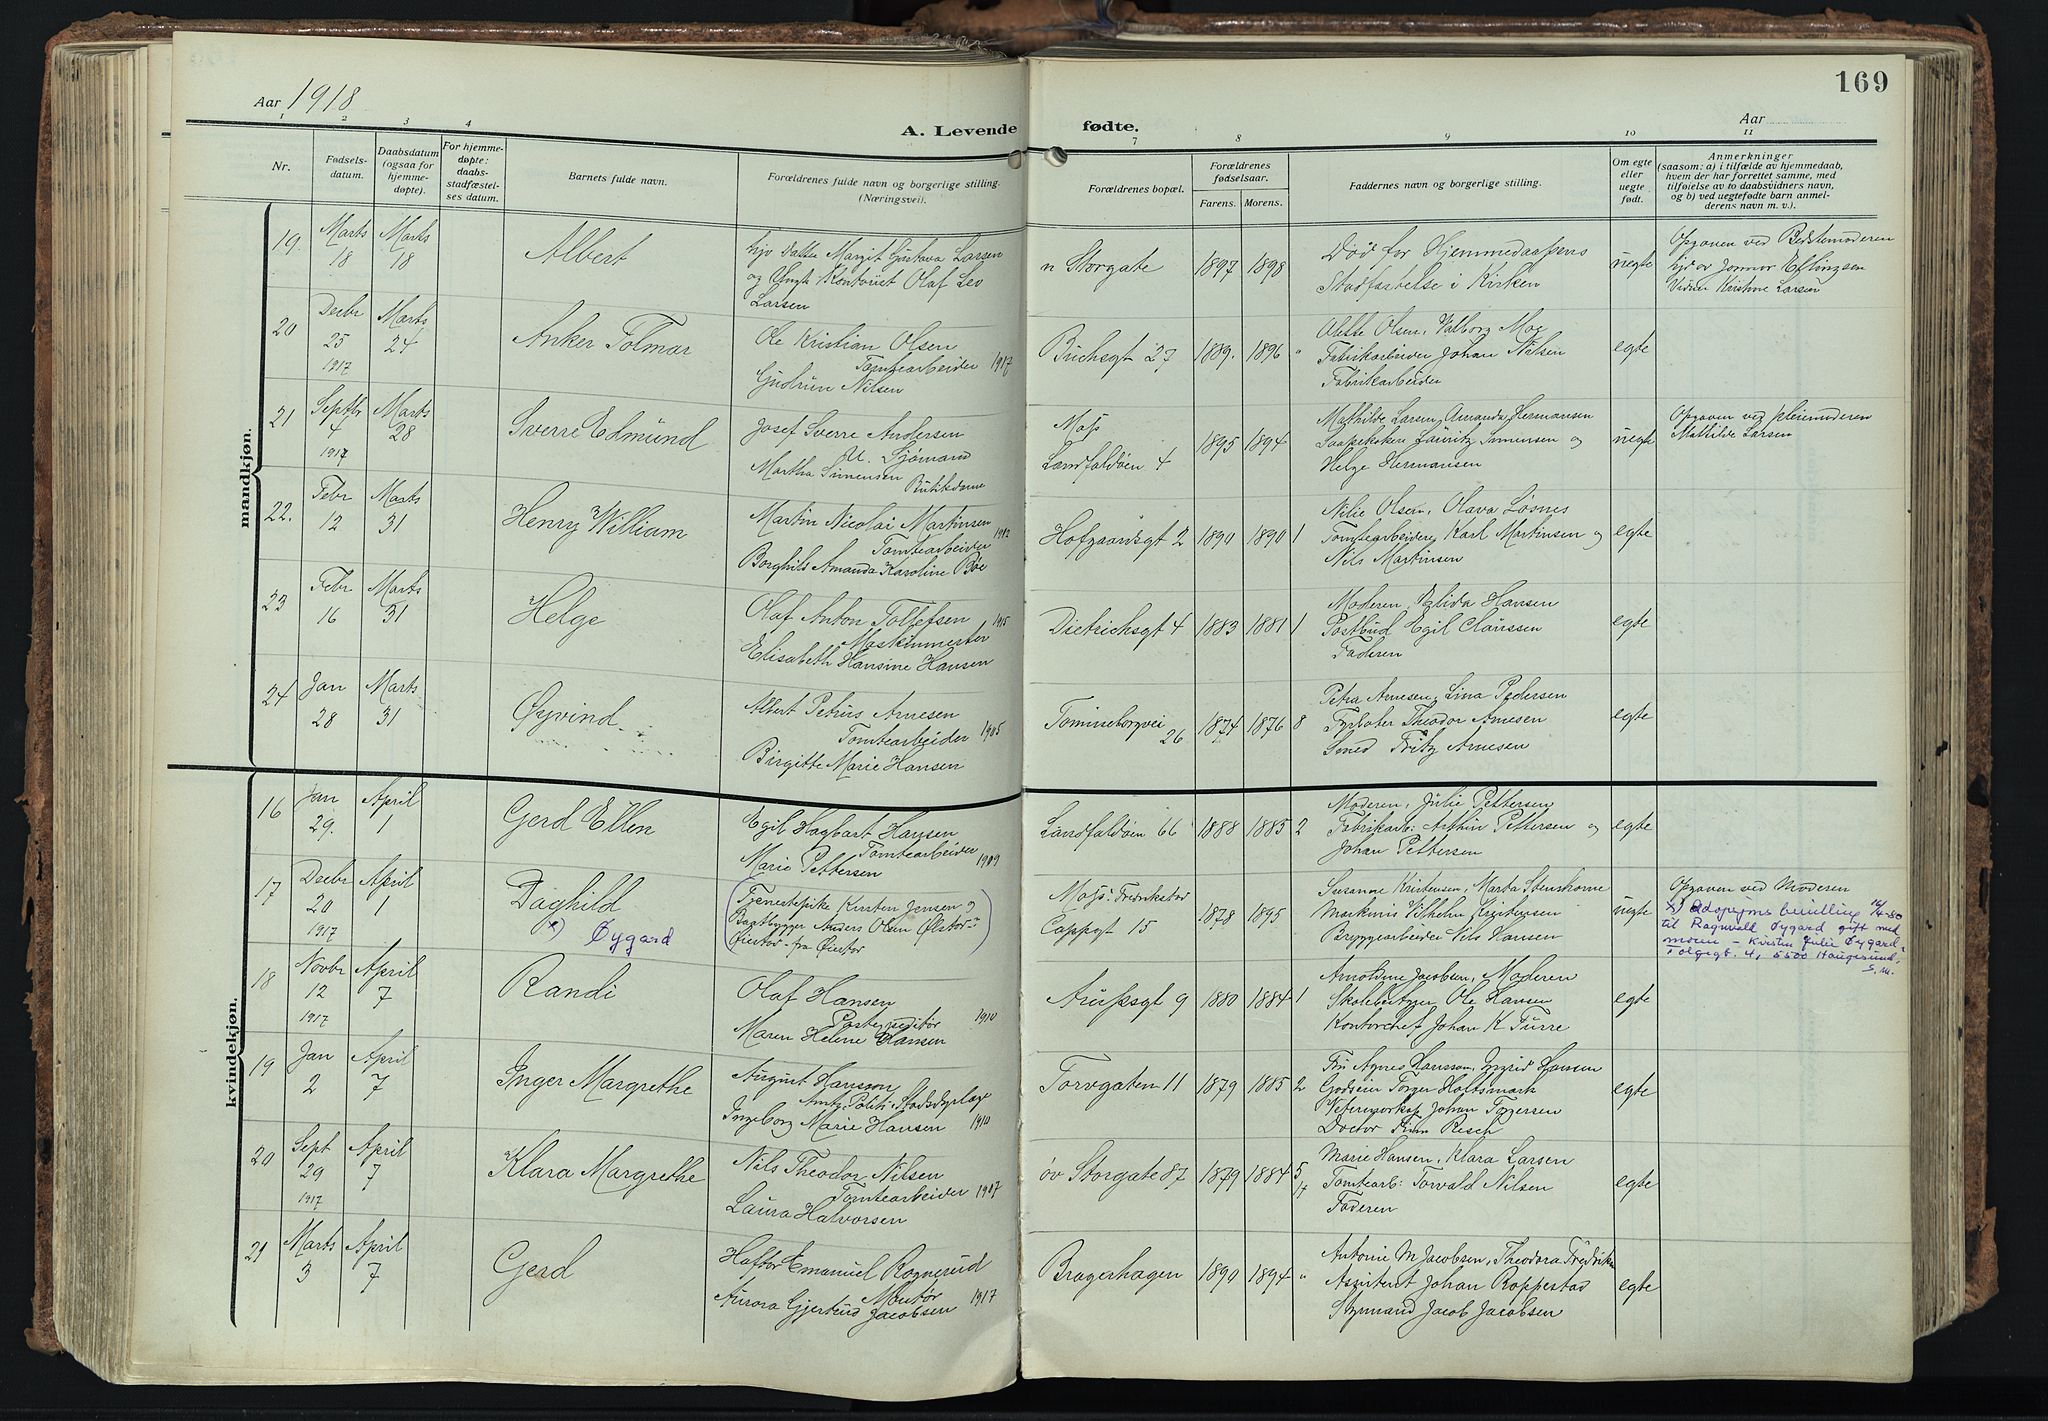 169
Aar 1918
Aar
A. Levende fødte.
1 2 3 4 7 8 9 10 11
Nr.
Fødsels-
datum.
Daabsdatum
(ogsaa for
hjemme-
døpte).
For hjemme-
døpte:
daabs-
stadfæstel-
ses datum.
Barnets fulde navn.
Forældrenes fulde navn og borgerlige stilling.
(Næringsvei).
Forældrenes bopæl.
Forældrenes
fødselsaar.
Farens. Morens.
Faddernes navn og borgerlige stilling.
Om egte
eller
uegte
født.
Anmerkninger
(saasom: a) i tilfælde av hjemmedaab,
hvem der har forrettet samme, med
tilføielse av to daabsvidners navn,
og b) ved uegtefødte barn anmel-
derens navn m. v.).
mandkjøn.
19. Marts 18 Marts 18
Albert
Datter Margit Gustava Larsen
og Kontorist Olaf
Larsen
n Storgate
1897 1898
Død før Hjemmedaapens
Stadfæstelse i Kirken
uegte
Opgaven ved Bedstemoderen
Vidner Kirstine Larsen
20 Decbr 25 1917 Marts 24
Anker Tolmar
Ole Kristian Olsen
Tomtearbeider 1917
Gudrun Nilsen
Buchsgt 27
1889. 1896 "
Olsen, Valborg Moe
Fabrikarbeider Johan Nilsen
Fabrikarbeider
egte
21 Septbr 4 1917 Marts 28
Sverre Edmund
Josef Sverre Andersen
U. Sjømand
Martha Simensen
Butikdame
Moss
Landfaldøen 4
1895 1894
Mathilde Larsen, Amanda Hermansen
Sæpekoker Lauritz Simensen og
Helge Hermansen
uegte
Opgaven ved Pleiemoderen
Mathilde Larsen
22. Febr 12 Marts 31
Henry William
Martin Nicolai Martinsen
Tomtearbeider 1912
Borghild Amanda Karoline Bøe
Hofgaardsgt 2
1890 1890 1
Olsen, Olava Løsnes
Tomtearbeidere Karl Martinsen og
Nils Martinsen
egte
23 Febr 16 Marts 31
Helge
Olaf Anton Tollefsen 1915
Maskinmester
Elisabeth Hansine Hansen
Dietrichsgt 4
1883 1881 1
Moderen, Hansen
Postbud Egil Claussen
Faderen
egte
24 Jan 28 Marts 31
Øyvind
Albert Petrus Arnesen
Tomtearbeider 1905
Birgitte Marie Hansen
Tomineborgvei
26
1874 1876 8
Petra Arnesen, Lina Pedersen
Fyrbøter Theodor Arnesen
Smed Fritz Arnesen
egte
kvindekjøn.
16 Jan 29. April 1
Gerd Ellen
Egil Hagbart Hansen
Tomtearbeider 1909
Marie Pettersen
Landfaldøen 66
1888 1885 2
Moderen, Julie Pettersen
Fabrikarb: Arthur Pettersen og
Johan Pettersen
egte
17 Decbr 20 1917 April 1
Daghild
x) Øygard
Tjenestepike Kirsten Jensen og
Baatbygger Anders Olsen Ølstor-
Øiestor - fra Øiestor
Moss: Fredrikstad
Cappgt 15
1878 1895
Susanne Kristensen, Marta Stenskorne
Maskinis Vilhelm Kristensen
Bryggearbeider Nils Hansen
uegte
Opgaven ved Moderen
x) Adopsjons bevilling 16/4-80
til Ragnvald Øygard gift med
moren - Kirsten Julie Øygard,
Tolgegt. 4, 5500 Haugesund.
S.M.
18 Novbr 12 1917 April 7
Randi
Olaf Hansen
Postexpeditør 1910
Maren Helene Hansen
Arupsgt 9
1880 1884 1
Arnoldine Jacobsen, Moderen
Skolebestyrer Ole Hansen
Kontorchef Johan K Turre
egte
19 Jan 2 April 7
Inger Margrethe
August Hansson
Amts, Politi & Stadsdyrlæge
Ingeborg Marie Hansen 1910
Torvgaten 11
1879 1885 2
Fru Agnes Hansson, Ingrid Hansen
Godseier Torger Holtsmark
Johan Torgersen
Doctor Finn Resch
egte
20 Sept 29 1917 April 7
Klara Margrethe
Nils Theodor Nilsen
Tomtearbeider 1907
Laura Halvorsen
øv Storgate 87
1879 1884 5/4
Marie Hansen, Klara Larsen
Tomtearb: Torvald Nilsen
Faderen
egte
21 Marts 3 April 7
Gerd
Haftor Emanuel Rognerud
Montør 1917
Aurora Gjertrud Jacobsen
Bragerhagen
1890 1894 "
Antonie M Jacobsen, Theodora Fredrik
Assistent Johan Roppestad
Sjømand Jacob Jacobsen
egte